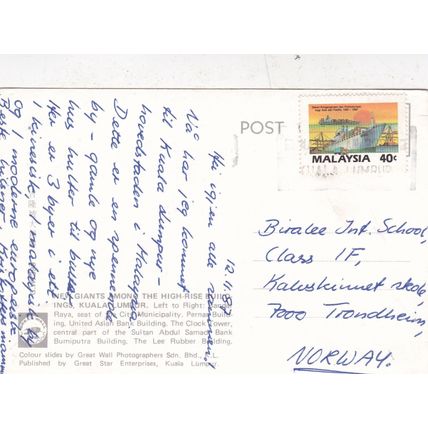 12.1.87
Hei igjen alle sammen!
Nå har jeg kommet
til Kuala Lumpur -
hovedstaden i Malaysia
Dette er en spennende
by - gamle og nye
hus butter til
Her er 3 byer i ett
1 kinesisk, 1 malayisk
og 1 moderne europeisk
Beste hilsener,
POST
MALAYSIA 40c
KUALA LUMPUR
Biralee Int. School,
Class 1F,
skole,
7000 Trondheim,
NORWAY.
GIANTS AMONG THE HIGH-RISE BUILD-
INGS, KUALA LUMPUR. Left to Right: Dang
Raya, seat of the City Municipality, Pernas Build-
ing, United Asian Bank Building. The Clock Tower,
central part of the Sultan Abdul Samad Bank
Bumiputra Building. The Lee Rubber Building.
Colour slides by Great Wall Photographers Sdn. Bhd., K.L.
Published by Great Star Enterprises, Kuala Lumpur.